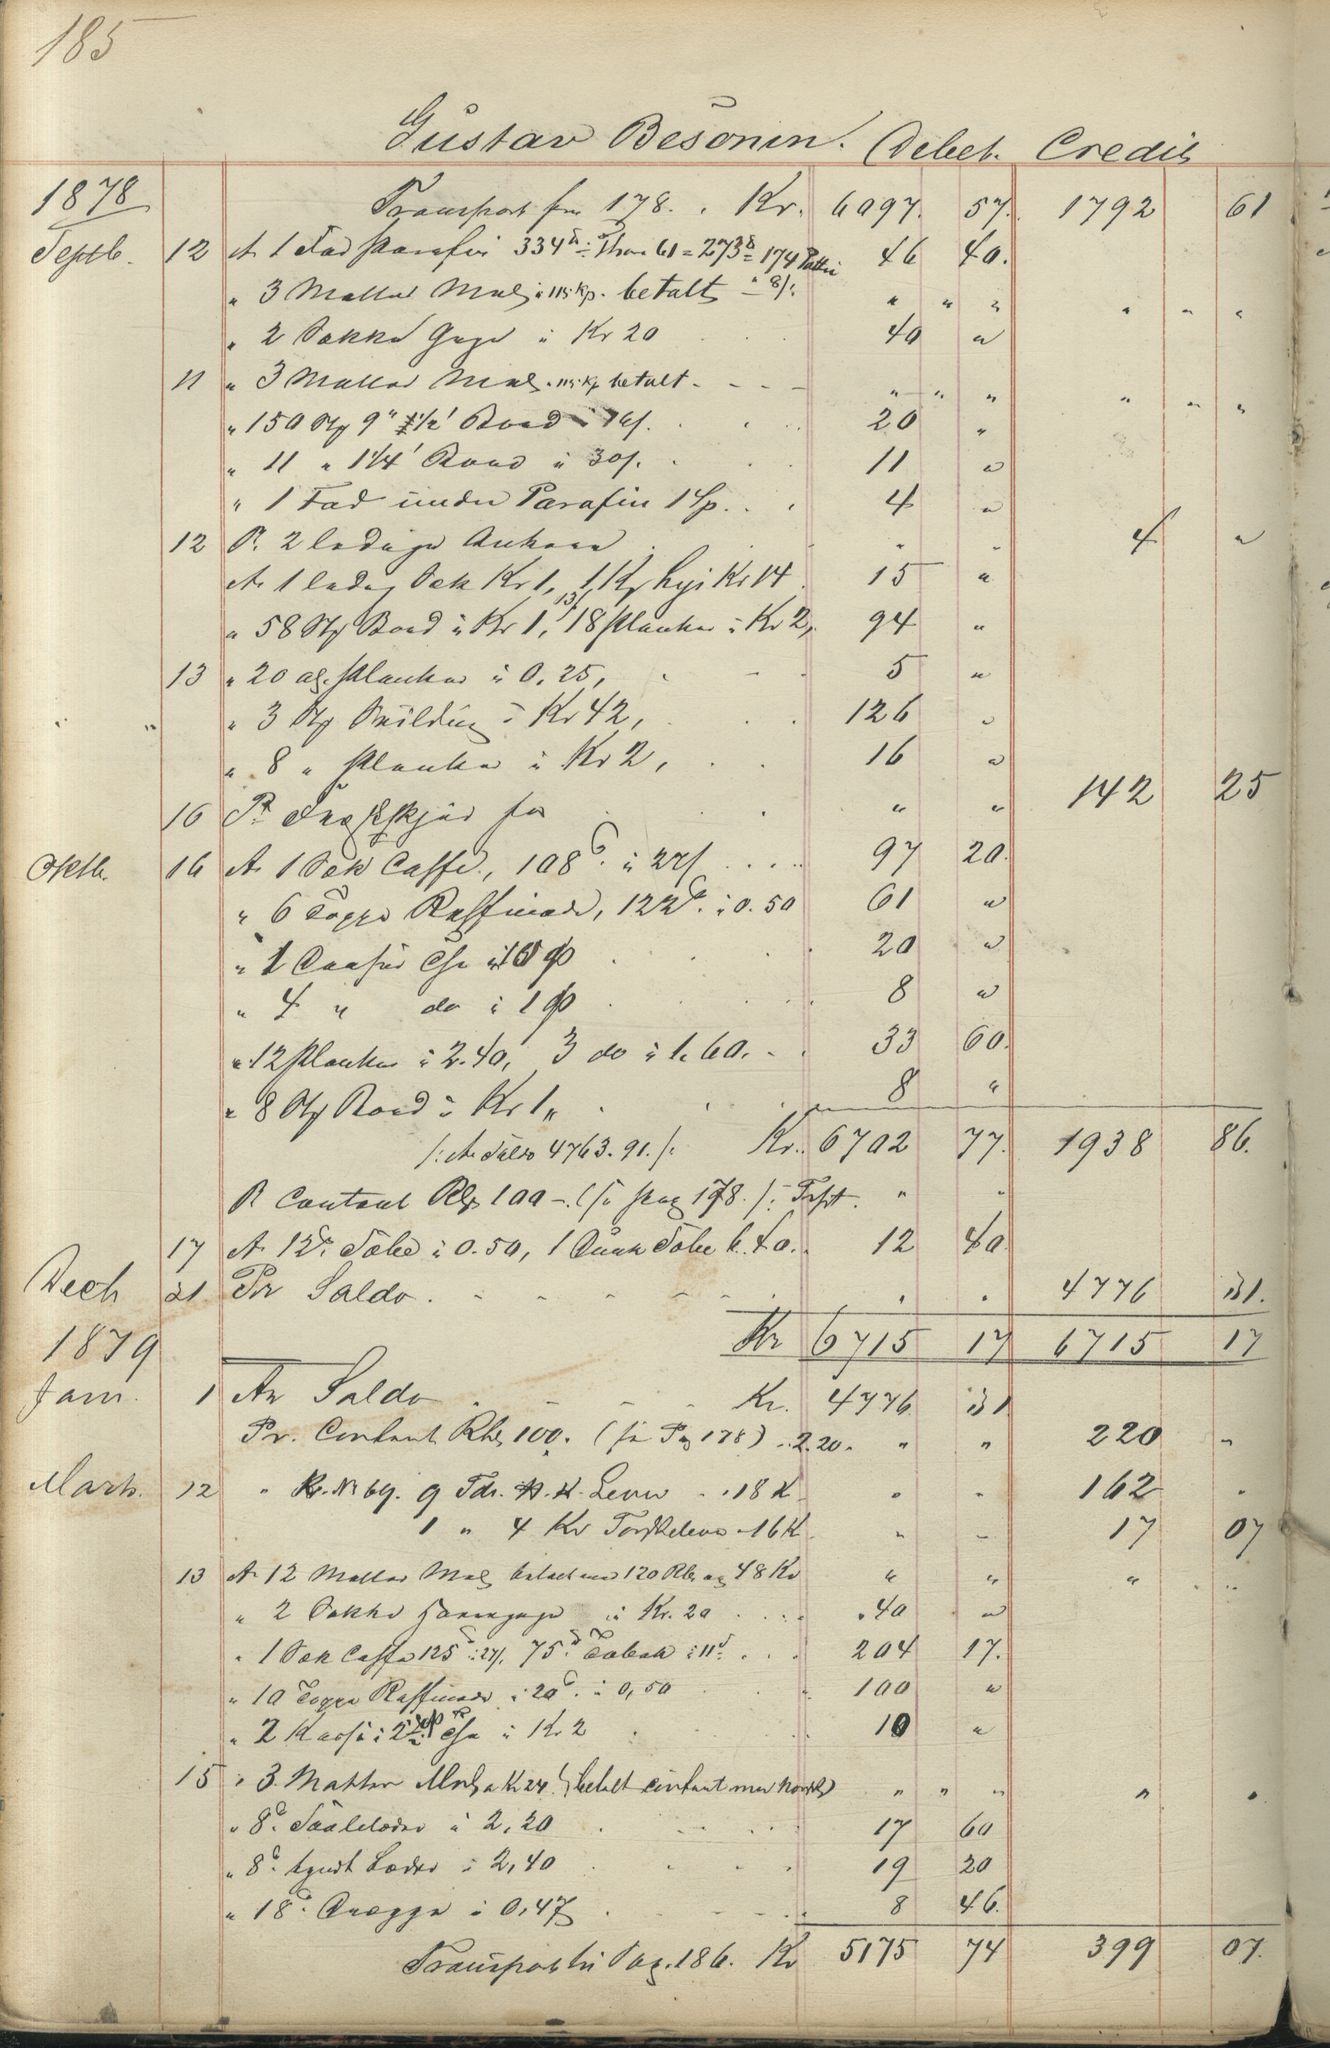 185
Gustav Besonin. Debet. Credit
1878 Transport fra 178. Kr. 6097. 57. 1792 61
Septb. 12 At 1 Fad Parafin 334 Thara 61 = 273 174 Potter 46 40.
" 3 Mattor Mel betalt " " " " " "
" 2 Sække Gryn à Kr 20 40 "
11 " 3 Mattor Mel betalt - - - " " " " " "
" 150 St 9" 1½' Bord 20 "
" 11 " 1¼' Bord à 30 11 "
" 1 Fad under Parafin 1 Sp. 4 "
12 Pr. 2 ledige Ankere " " 4 "
At 1 ledig Sæk Kr 1, 1 Kr 14 15 "
" 58 St Bord à Kr 1, 18 Planker à Kr 2, 94 "
13 " 20 al. Planker à 0.25, 5 "
" 3 St à Kr 42, 126 "
" 8 " Planker à Kr 2, 16 "
16 Pr. for " " 142 25
Oktb. 16 At 1 Sæk Caffe, 108 à 27 97 20.
" 6 Toppe Raffinade, 122 à 0.50 61 "
" 1 20 "
" 4 " do à 1 8 "
" 12 Planker à 2.40, 3 do à 1.60. 33 60.
" 8 St Bord à Kr 1 " 8 "
/: At Saldo 4763.91. /: Kr. 6702 77. 1938 86.
Pr Contant Rbl 100 - (se Pag 178. /: " "
17 At 12 Sæbe à 0.50, 1 Sæbe 6.40. 12 40
Decb 31 Pr Saldo . . 4776 31.
Kr 6715 17 6715 17
1879
Janr. 1 An Saldo Kr. 4776 31
Pr. Contant Rbl 100. (se Pag 178) 2.20. " " 220 "
Marts. 12 " Kr. Nr 69. 9 Tdr. Lever 18 K " " 162 "
1 " 4 Kv Torskelever 16 K " " 17 07
13 At 12 Mattor Mel betalt med 120 Rbl og 48 Kr " " " "
" 2 Sække Havregryn à Kr. 20 40 "
" 1 Sæk Caffe 125 à 27, 75 Tobak à 11 204 17.
" 10 Toppe Raffinade à 20 à 0,50 100 "
" 2 à Kr 2 10 "
15 " 3 Mattor Mel à Kr 24 betalt contant med " " " " "
" 8 Saalelæder à 2,20 17 60
" 8 tyndt Læder à 2,40 19 20
" 18 à 0,47 8 46.
Transport til Pag. 186. Kr 5175 74 399 07.